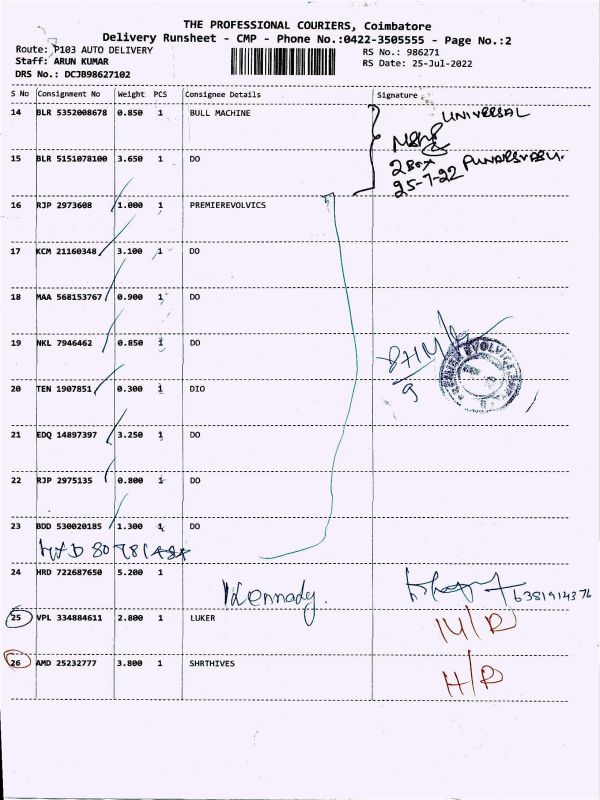 THE PROFESSIONAL COURIERS, Coimbatore
Delivery Runsheet - CMP - Phone No.:0422-3505555 - Page No.:2
Route: P103 AUTO DELIVERY
Staff: ARUN KUMAR
DRS No.: DCJB98627102
RS No.: 986271
RS Date: 25-Jul-2022
S No Consignment No Weight PCS Consignee Details Signature
14 BLR 5352008678 0.850 1 BULL MACHINE
UNIVERSAL
15 BLR 5151078100 3.650 1 DO
2 Box PUNARSVASU.
25-7-22
16 RJP 2973608 1.000 1 PREMIEREVOLVICS
17 KCM 21160348 3.100 1 DO
18 MAA 568153767 0.900 1 DO
19 NKL 7946462 0.850 1 DO
20 TEN 1907851 0.300 1 DIO
9
21 EDQ 14897397 3.250 1 DO
22 RJP 2975135 0.800 1 DO
23 BDD 530020185 1.300 1 DO
24 HRD 722687650 5.200 1 Kennady. 6381914376
25 VPL 334884611 2.800 1 LUKER
26 AMD 25232777 3.800 1 SHRTHIVES H/R